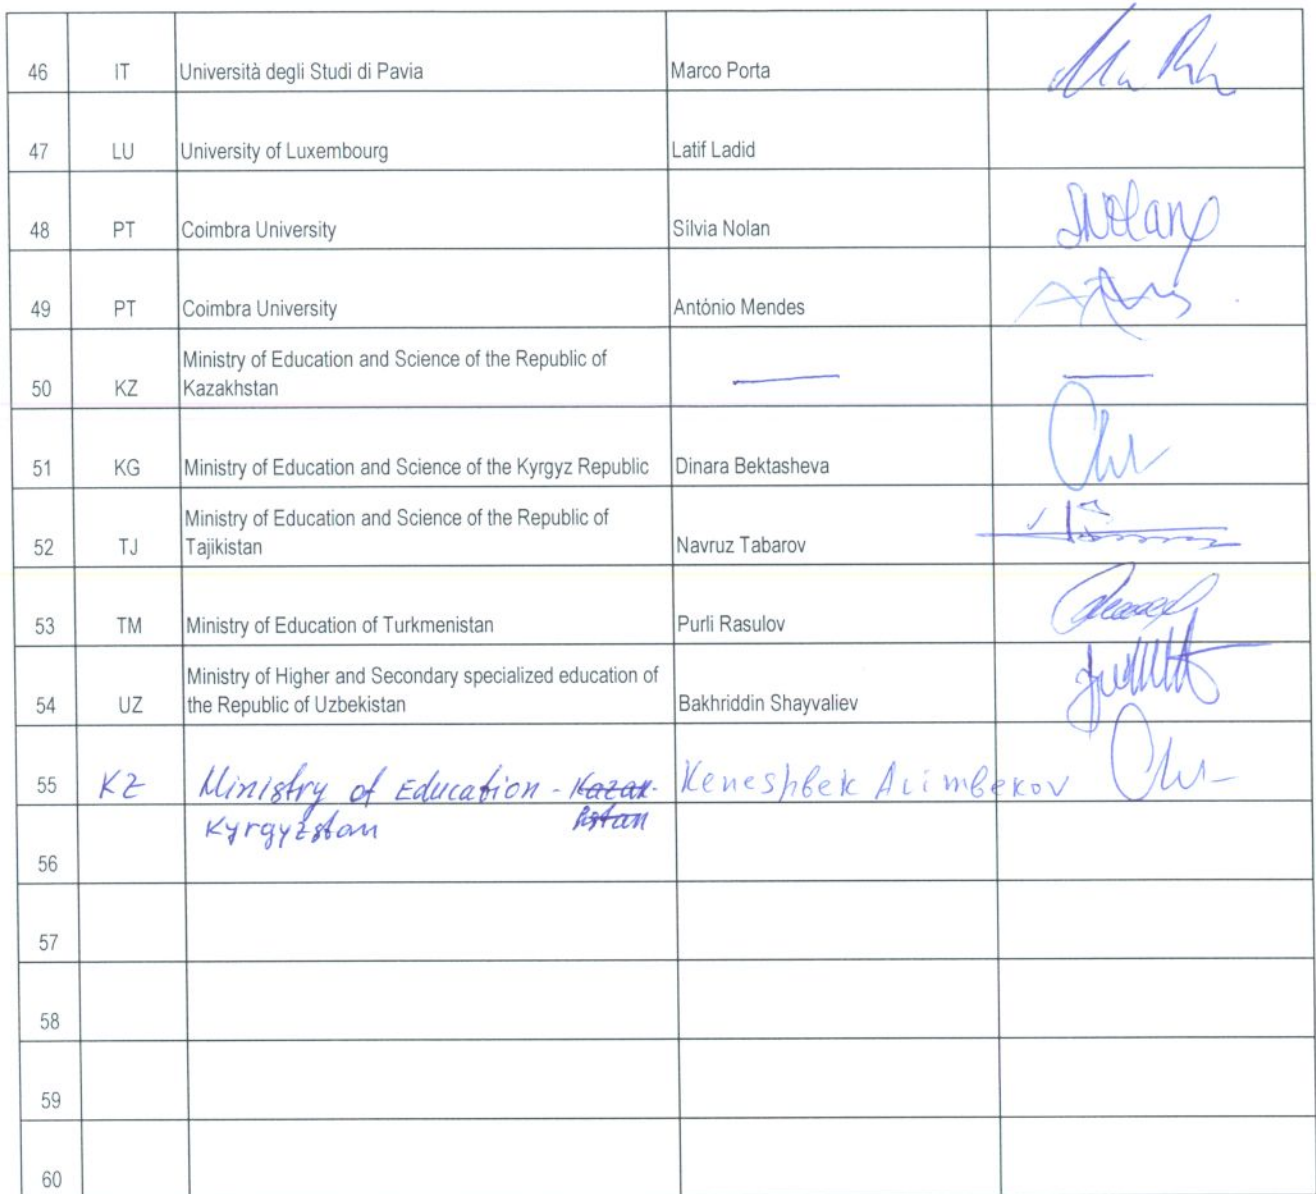 46 IT Università degli Studi di Pavia Marco Porta
47 LU University of Luxembourg Latif Ladid
48 PT Coimbra University Sílvia Nolan SNolan
49 PT Coimbra University António Mendes
Ministry of Education and Science of the Republic of
50 KZ Kazakhstan
51 KG Ministry of Education and Science of the Kyrgyz Republic Dinara Bektasheva
Ministry of Education and Science of the Republic of
52 TJ Tajikistan Navruz Tabarov
53 TM Ministry of Education of Turkmenistan Purli Rasulov
Ministry of Higher and Secondary specialized education of
54 UZ the Republic of Uzbekistan Bakhriddin Shayvaliev
55 KZ Ministry of Education - Kazak- Keneshbek
Kyrgyzstan
56
57
58
59
60